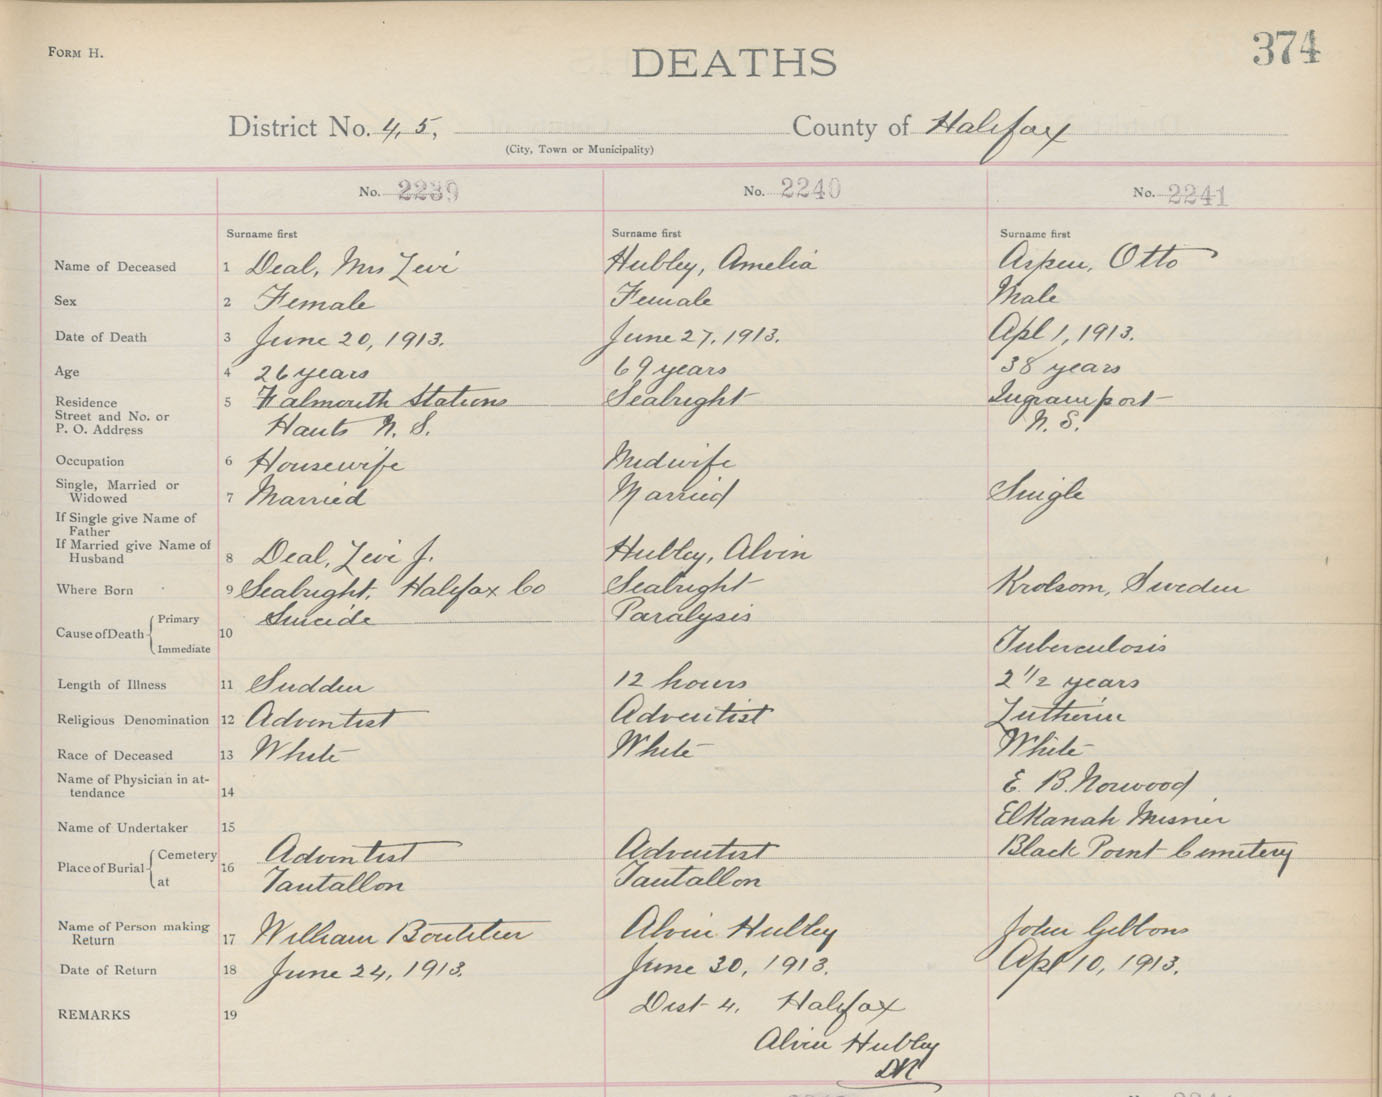 FORM H.
DEATHS
374
District No. 4, 5,
County of Halifax
(City, Town or Municipality)
No. 2239
No. 2240
No. 2241
Surname first
Surname first
Surname first
Name of Deceased 1 Deal, Mrs Levi Hubley, Amelia Aspen, Otto
Sex 2 Female Female Male
Date of Death 3 June 20, 1913. June 27, 1913. Apl 1, 1913.
Age 4 26 years 69 years 38 years
Residence
Street and No. or
P. O. Address 5 Falmouth Stations Seabright Ingramport
Hants N. S. N. S.
Occupation 6 Housewife Midwife
Single, Married or
Widowed 7 Married Married Single
If Single give Name of
Father
If Married give Name of
Husband 8 Deal, Levi J. Hubley, Alvin
Where Born 9 Seabright, Halifax Co Seabright Krolsom, Sweden
Cause of Death Primary 10 Suicide Paralysis
Immediate Tuberculosis
Length of Illness 11 Sudden 12 hours 2 1/2 years
Religious Denomination 12 Adventist Adventist Lutherin
Race of Deceased 13 White White White
Name of Physician in at-
tendance 14 E. B. Norwood
Name of Undertaker 15 Elkanah Misner
Place of Burial Cemetery 16 Adventist Adventist Black Point Cemetery
at Tantallon Tantallon
Name of Person making
Return 17 William Boutilier Alvin Hubley John Gibbons
Date of Return 18 June 24, 1913. June 30, 1913. Apl 10, 1913.
REMARKS 19 Dist 4. Halifax
Alvin Hubley
DR